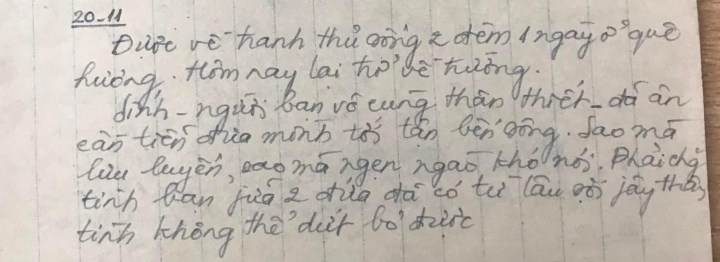 20-11
Được về tranh thủ sống 2 đêm 1 ngày ở quê
hương. Hôm nay lại trở về trường.
Dính - người bạn vô cùng thân thiết - đã ân
cần tiễn đưa mình tới tận bến sông. Sao mà
lưu luyến, sao mà ngẹn ngào khó nói. Phải chg
tình bạn jưã 2 đứa đã có từ lâu sợi jây thân
tình không thể dứt bỏ được